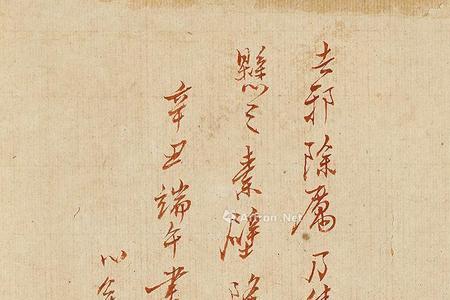 去邪除厲乃
懸之素壁降
辛丑端午
心
Artron.Net